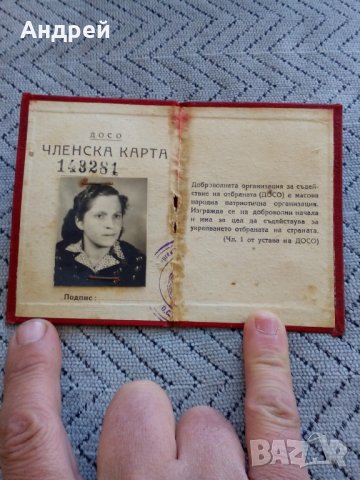 Андрей
ДОСО
ЧЛЕНСКА КАРТА
149281
Подпис:
Доброволната организация за съдей-
ствие на отбраната (ДОСО) е масова
народна патриотична организация.
Изгражда се на доброволни начала
и има за цел да съдействува за
укрепването отбраната на страната.
(Чл. 1 от устава на ДОСО)
bazar